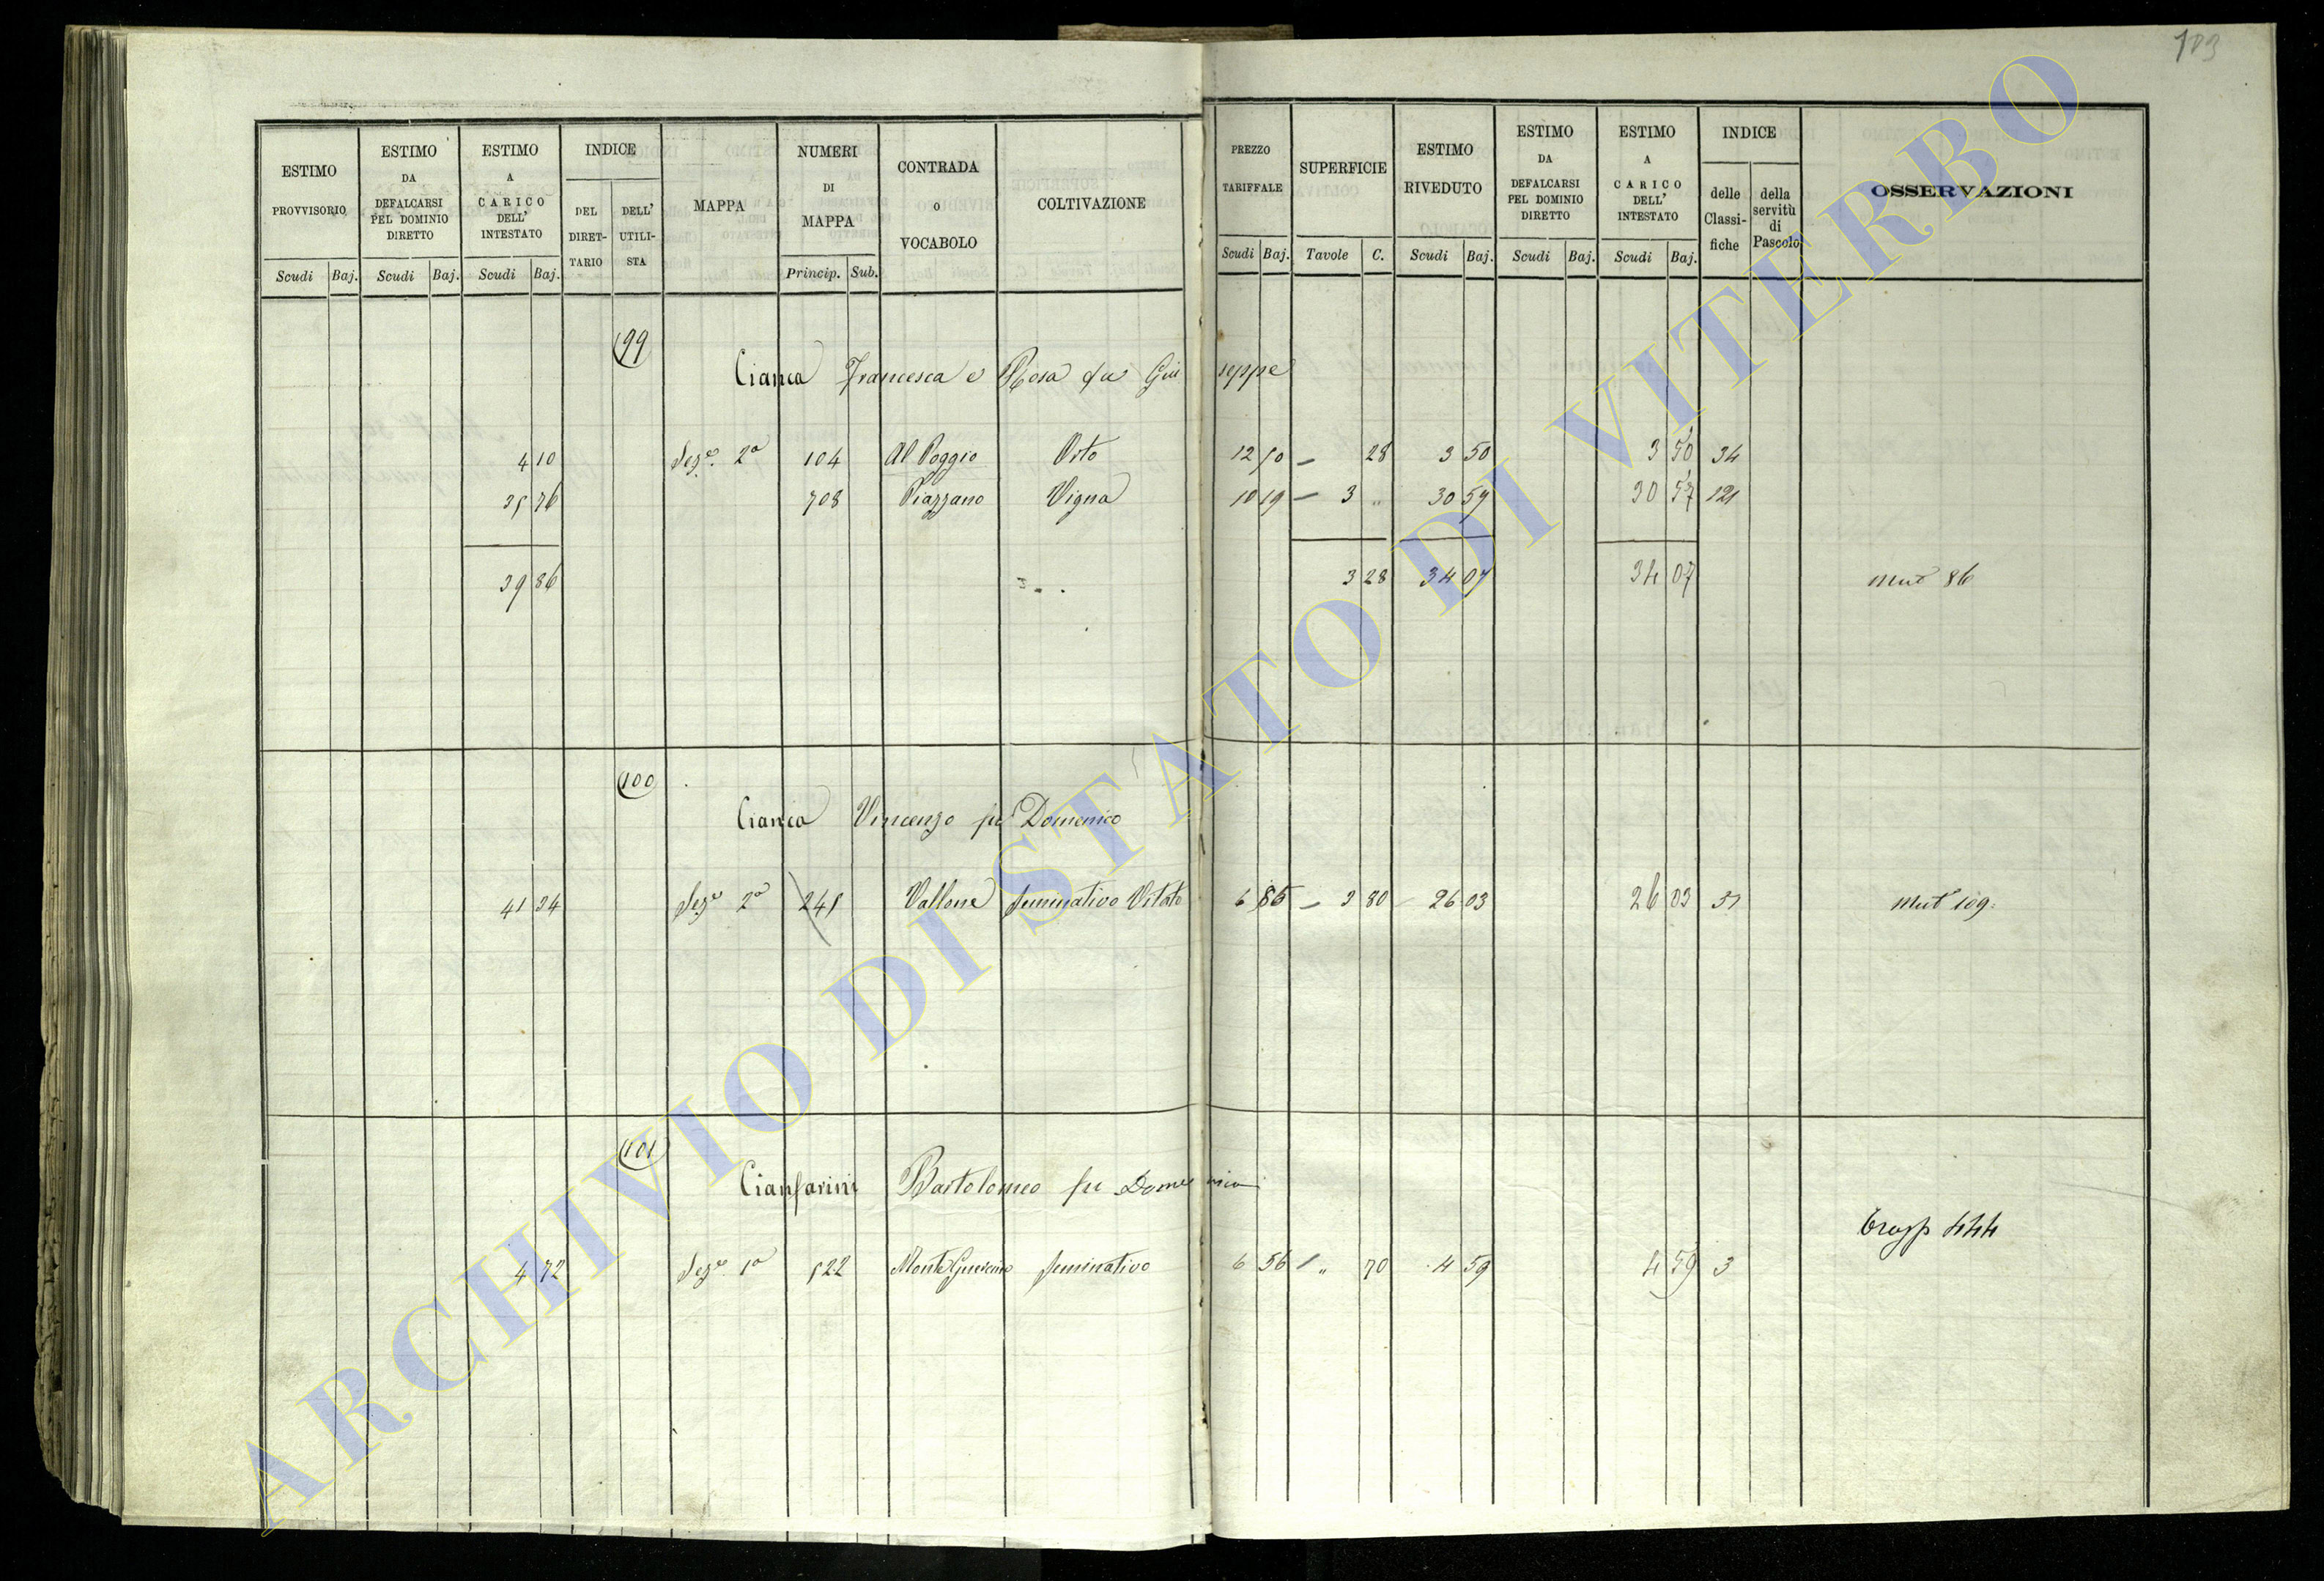 103
ESTIMO PROVVISORIO
ESTIMO DA DEFALCARSI PEL DOMINIO DIRETTO
ESTIMO A CARICO DELL' INTESTATO
INDICE
DEL DIRET-TARIO
DELL' UTILI-STA
MAPPA
NUMERI DI MAPPA
CONTRADA O VOCABOLO
COLTIVAZIONE
PREZZO TARIFFALE
SUPERFICIE
ESTIMO RIVEDUTO
ESTIMO DA DEFALCARSI PEL DOMINIO DIRETTO
ESTIMO A CARICO DELL' INTESTATO
INDICE
delle Classi-fiche
della servitù di Pascolo
OSSERVAZIONI
Scudi Baj. Scudi Baj. Scudi Baj. Princip. Sub. Scudi Baj. Tavole C. Scudi Baj. Scudi Baj. Scudi Baj.
99
Cianca Francesca e Rosa fu Giuseppe
4 10 Sez.e 2a 104 Al Poggio Orto 12 50 28 3 50 3 50 34
35 76 708 Piazzano Vigna 10 19 3 " 30 57 30 57 121
39 86 3 28 34 07 34 07 Mut 86
100
Cianca Vincenzo fu Domenico
41 34 Sez.e 2a 241 Vallone Seminativo Vitato 6 85 3 80 26 03 26 03 51 Mut 109
101
Cianfarini Bartolomeo fu Domenico
4 72 Sez.e 1a 522 Seminativo 6 56 " 70 4 59 4 59 3
444
ARCHIVIO DI STATO DI VITERBO